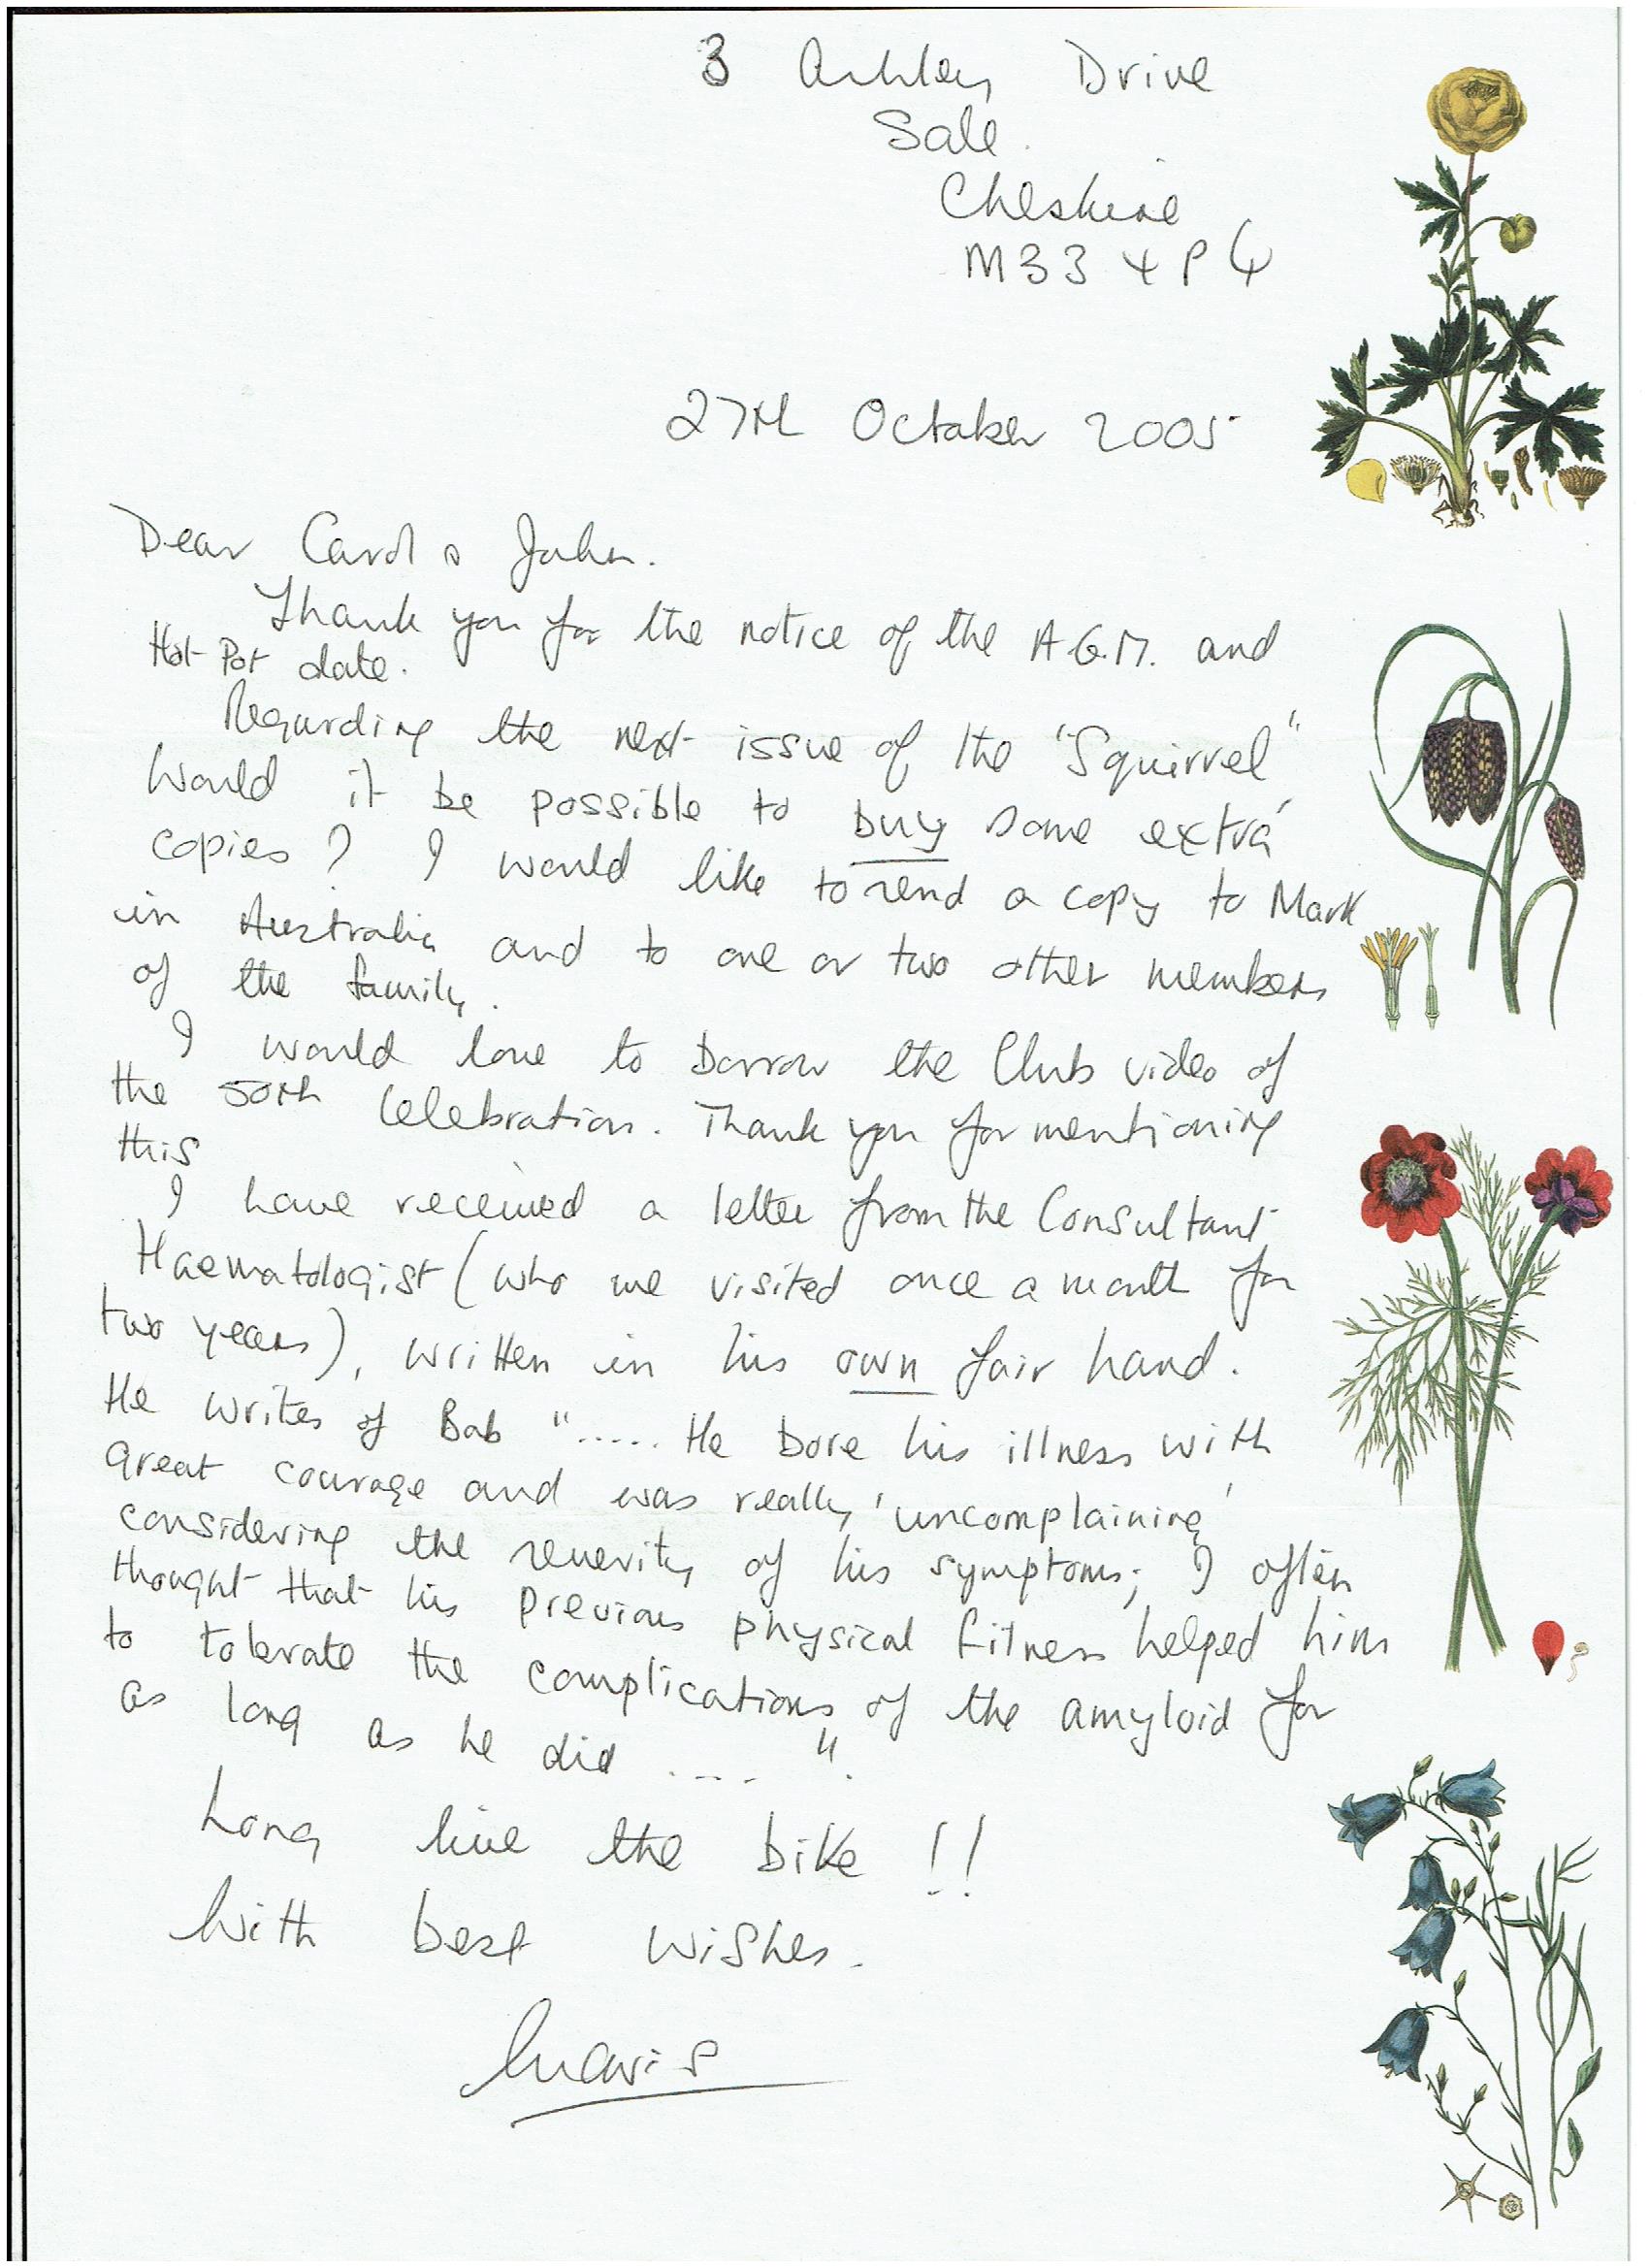 3 Ashley Drive
Sale.
Cheshire
M33 4PG
27TH October 2005
Dear Carol & John.
Thank you for the notice of the A.G.M. and
Hot-Pot date.
Regarding the next issue of the "Squirrel"
would it be possible to buy some extra
copies? I would like to send a copy to Mark
in Australia and to one or two other members
of the family.
I would love to borrow the Club video of
the 50th Celebration. Thank you for mentioning
this
I have received a letter from the Consultant
Haematologist (who we visited once a month for
two years), written in his own fair hand.
He writes of Bob "..... He bore his illness with
great courage and was really 'uncomplaining'
considering the severity of his symptoms; I often
thought that his previous physical fitness helped him
to tolerate the complications of the amyloid for
as long as he did ....".
Long live the bike!!
With best wishes.
Mavis